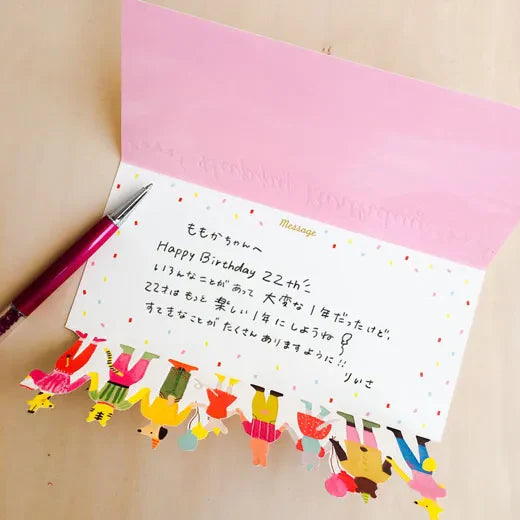 Message
ももかちゃんへ
Happy Birthday 22th
いろんなことがあって 大変な1年だったけど、
22才は もっと 楽しい1年にしようね
すてきなことが たくさん ありますように!!
りいさ